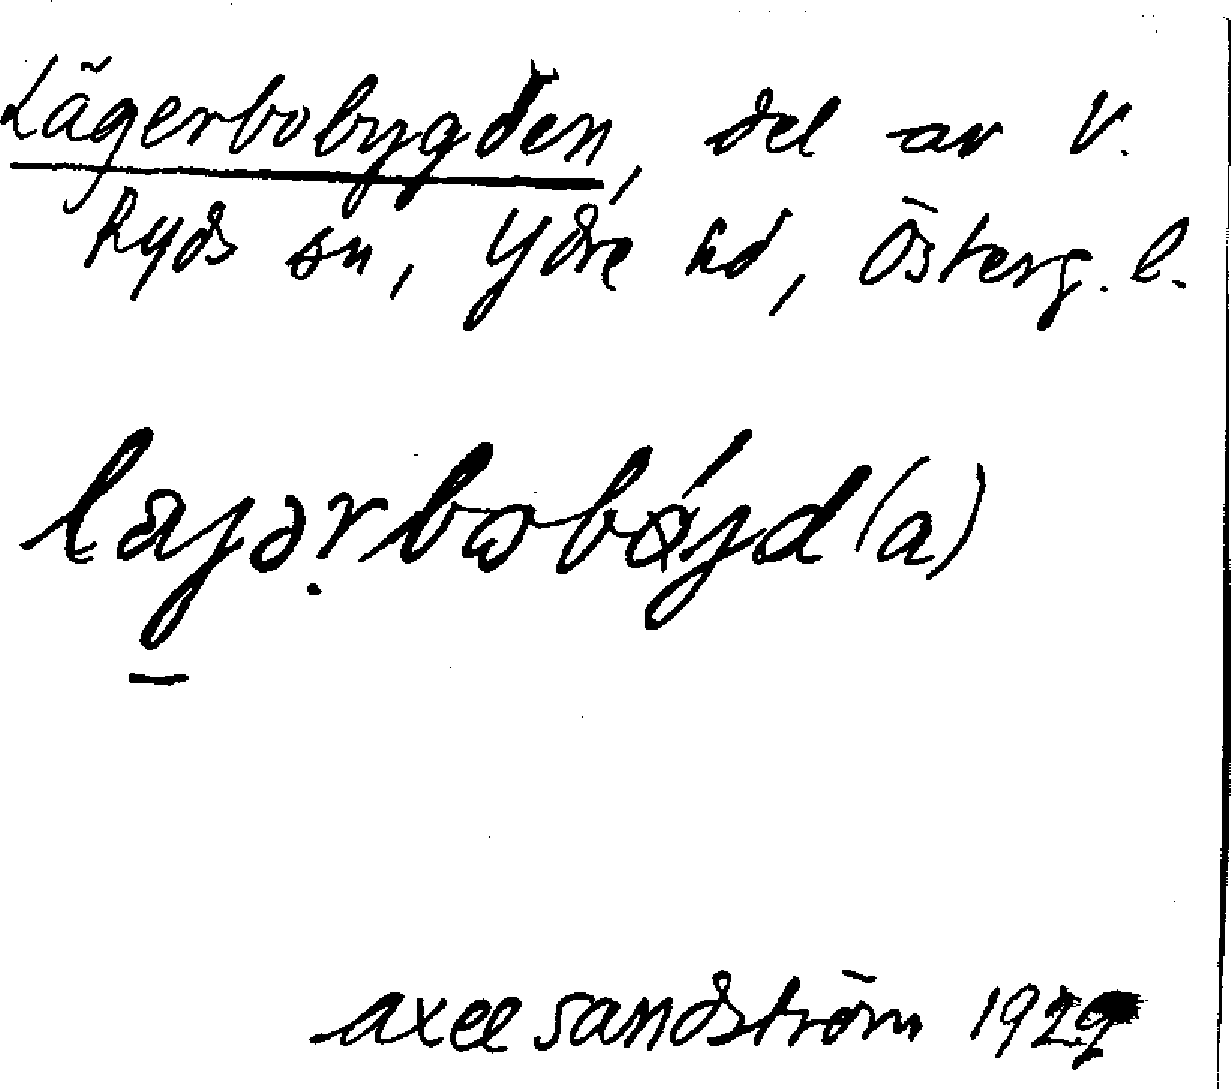 Lägerbobygden, del av V.
Ryds sn, Ydre hd, Österg. l.
Axel Sandström 1929